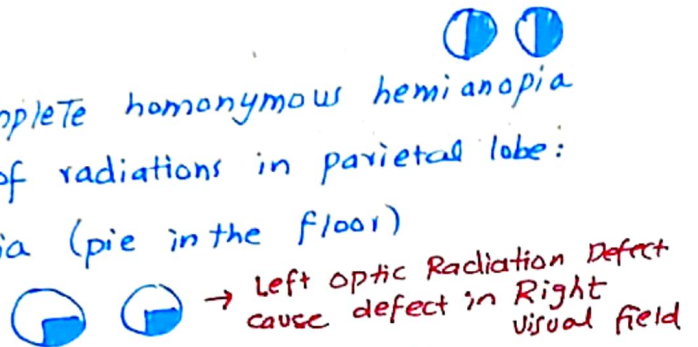 mplete homonymous hemianopia
of radiations in parietal lobe:
ia (pie in the floor)
→ Left optic Radiation Defect
cause defect in Right
visual field